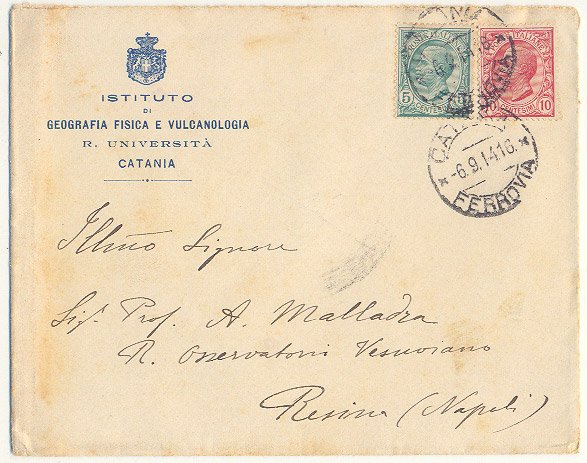 ISTITUTO
DI
GEOGRAFIA FISICA E VULCANOLOGIA
R. UNIVERSITÀ
CATANIA
POSTE ITALIANE
5 CENTESIMI
10 CENTESIMI 10
CATANIA
-6.9.14 16.
* FERROVIA *
Illmo Signore
Sigr. Prof. A. Malladra
R. Osservatorio Vesuviano
Resina (Napoli)